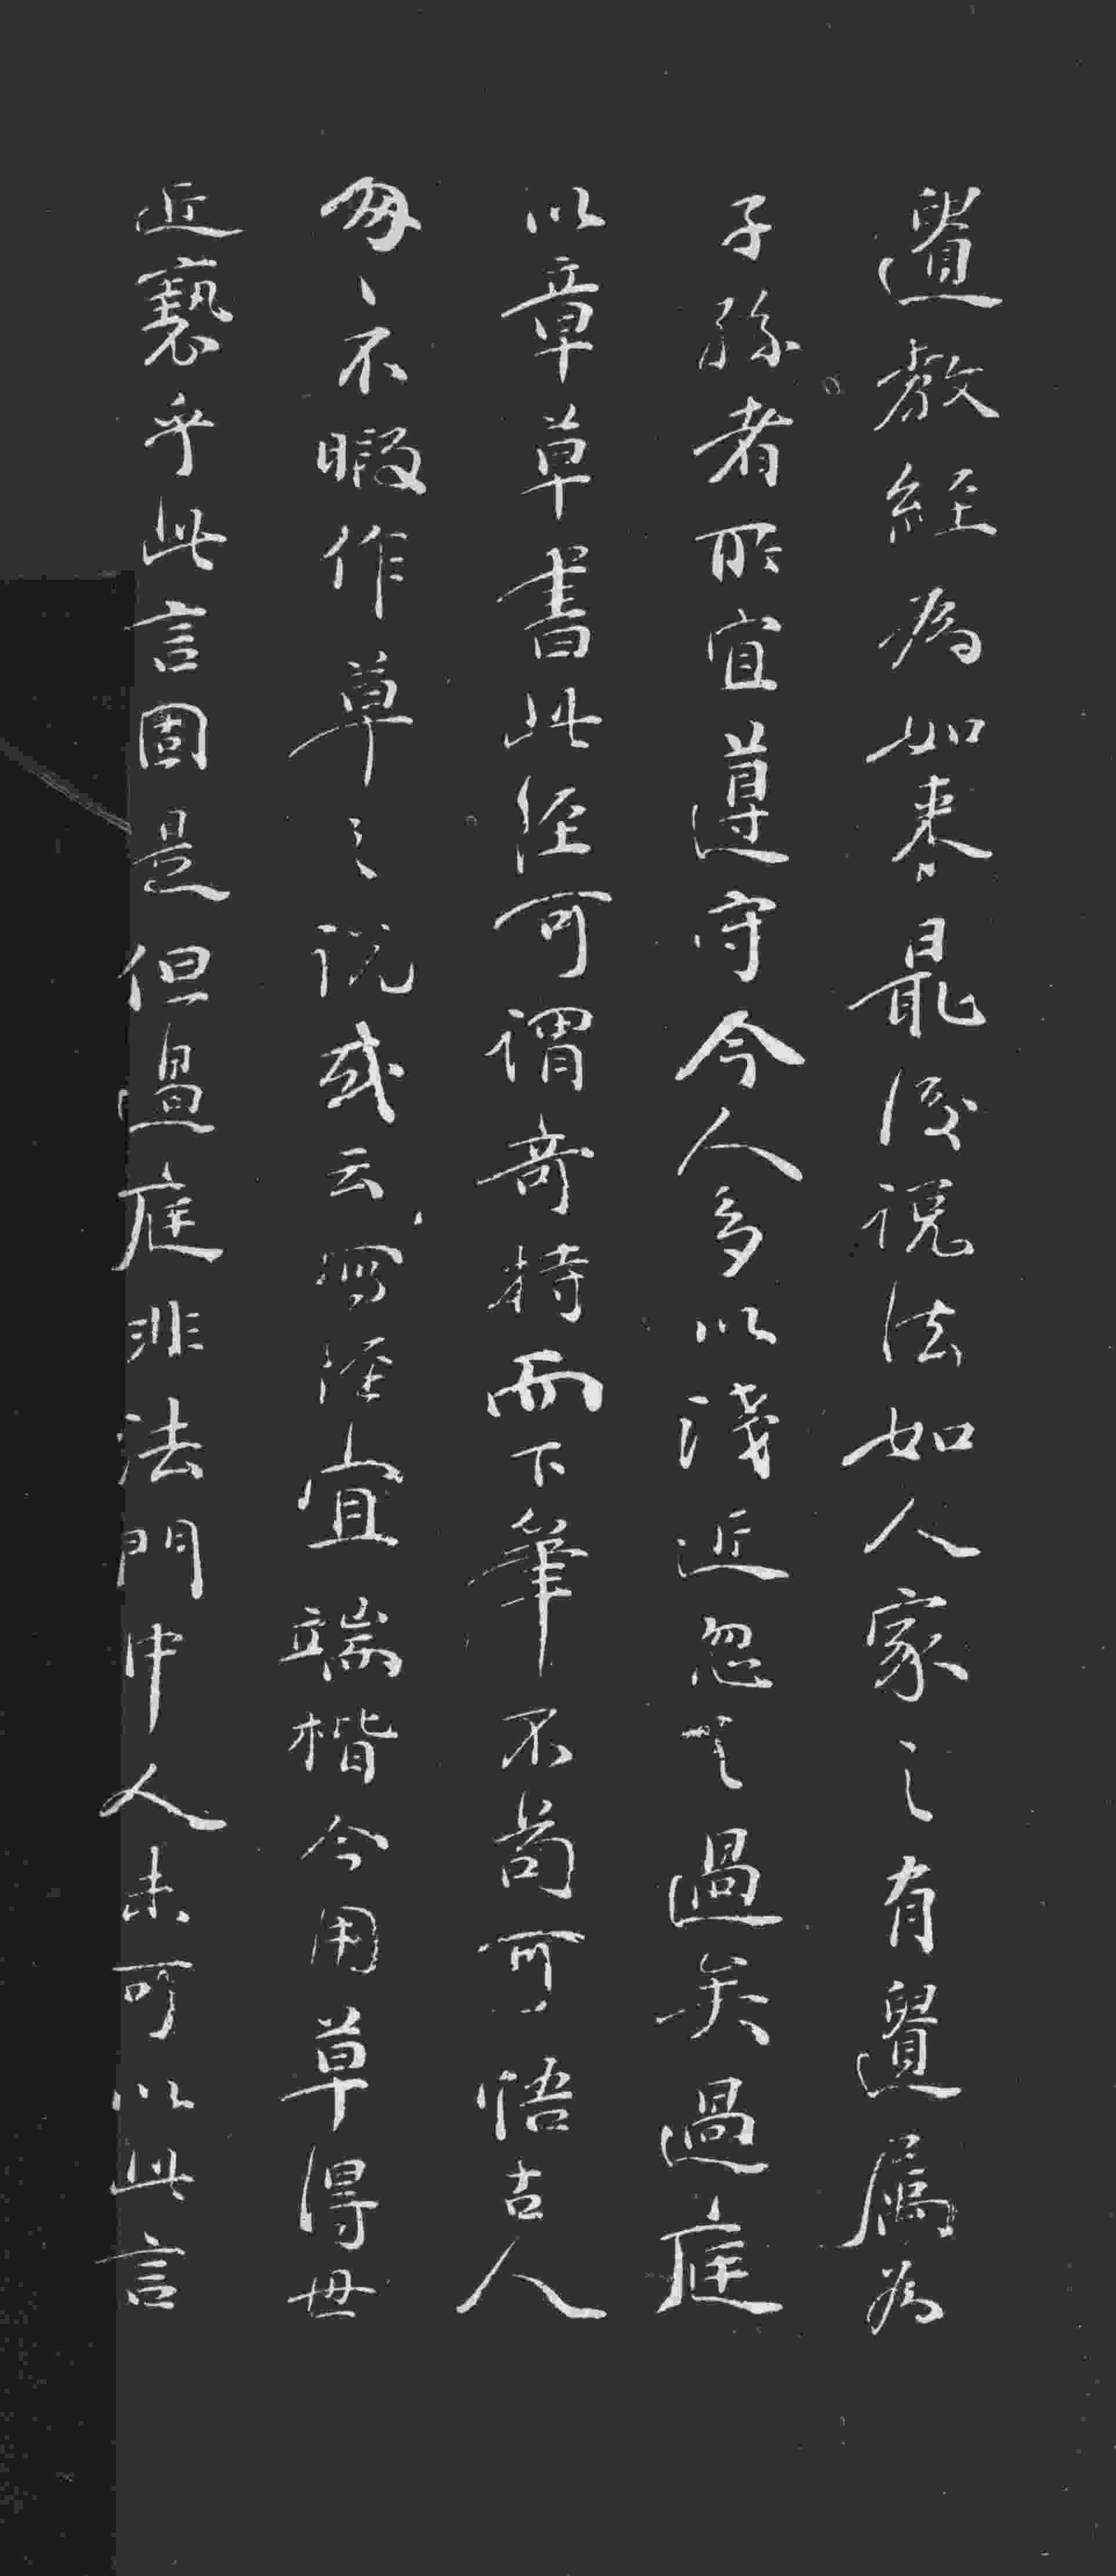 遺教經為如来最後説法如人家之有遺屬為
子孫者所宜遵守今人多以淺近忽之過矣過庭
以章草書此經可謂奇特而下筆不苟可悟古人
匆〻不暇作草之説或云寫經宜端楷今用草得毋
近褻乎此言固是但過庭非法門中人未可以此言